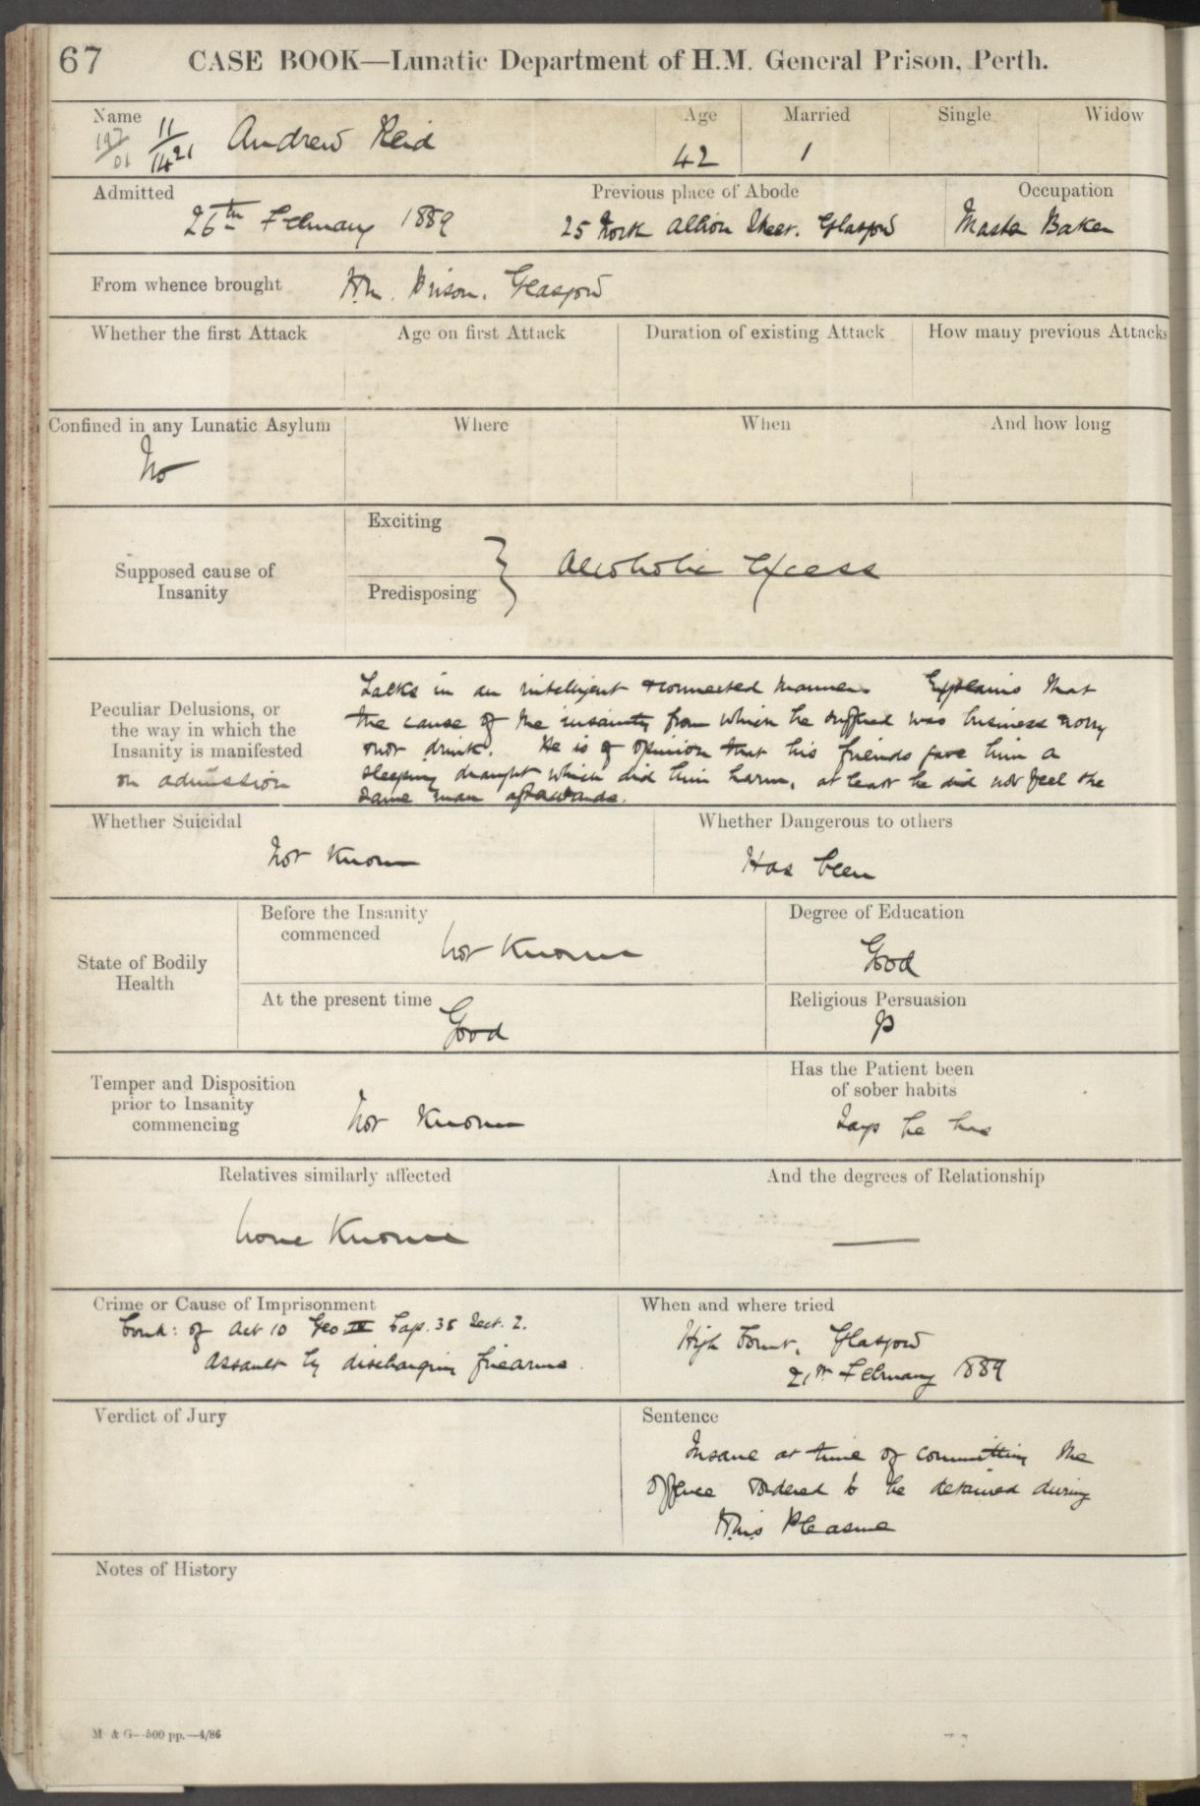 67 CASE BOOK—Lunatic Department of H.M. General Prison, Perth.
Name Age Married Single Widow
197/01 11/1421 Andrew Reid 42 1
Admitted Previous place of Abode Occupation
26th February 1889 25 North Albion Street. Glasgow Master Baker
From whence brought H.M. Prison. Glasgow
Whether the first Attack Age on first Attack Duration of existing Attack How many previous Attacks
Confined in any Lunatic Asylum Where When And how long
No
Exciting
Supposed cause of
Insanity
Alcoholic Excess
Predisposing
Talks in an intelligent & connected manner. Explains that
Peculiar Delusions, or
the cause of the insanity from which he suffered was business worry
the way in which the
Insanity is manifested
not drink. He is of opinion that his friends gave him a
on admission
sleeping draught which did him harm, at least he did not feel the
same man afterwards.
Whether Suicidal Whether Dangerous to others
Not Known Has been
Before the Insanity
commenced
Not Known
Degree of Education
Good
State of Bodily
Health
At the present time
Good
Religious Persuasion
P
Temper and Disposition
prior to Insanity
commencing
Not Known
Has the Patient been
of sober habits
Says he has
Relatives similarly affected And the degrees of Relationship
None Known —
Crime or Cause of Imprisonment When and where tried
Cont: of Act 10 Geo IV Cap. 38 Sect. 2.
Assault by discharging firearms.
High Court, Glasgow
21st February 1889
Verdict of Jury Sentence
Insane at time of committing the
offence & ordered to be detained during
H.M's Pleasure
Notes of History
M & G—500 pp.—4/86